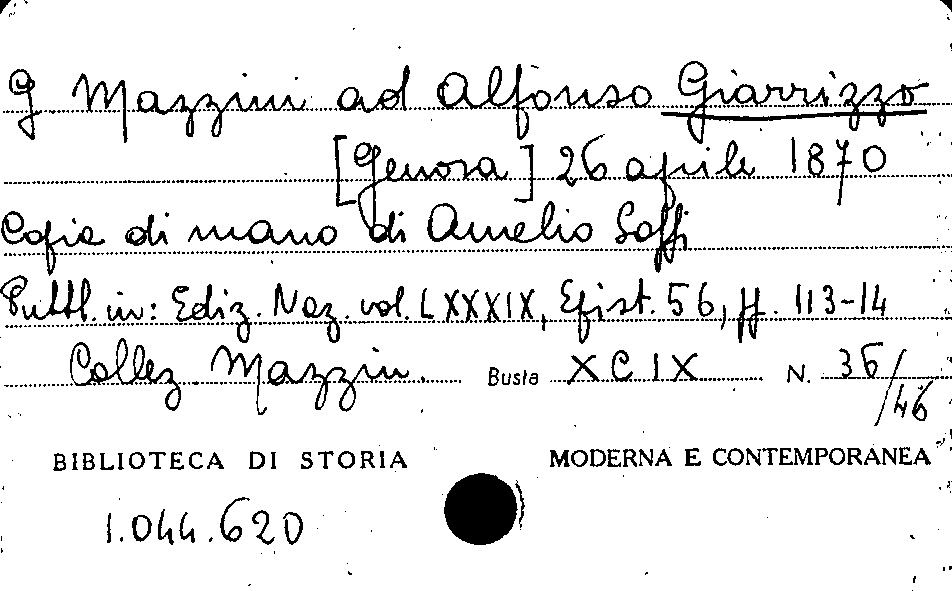 G Mazzini ad Alfonso Giarrizzo
[Genova] 26 aprile 1870
Copia di mano di Aurelio Saffi
Pubbl. in: Ediz. Naz. vol. LXXXIX, Epist. 56, pp. 113-14
Collez. Mazzini. Busta XCIX N. 36/46
BIBLIOTECA DI STORIA MODERNA E CONTEMPORANEA
1.044.620